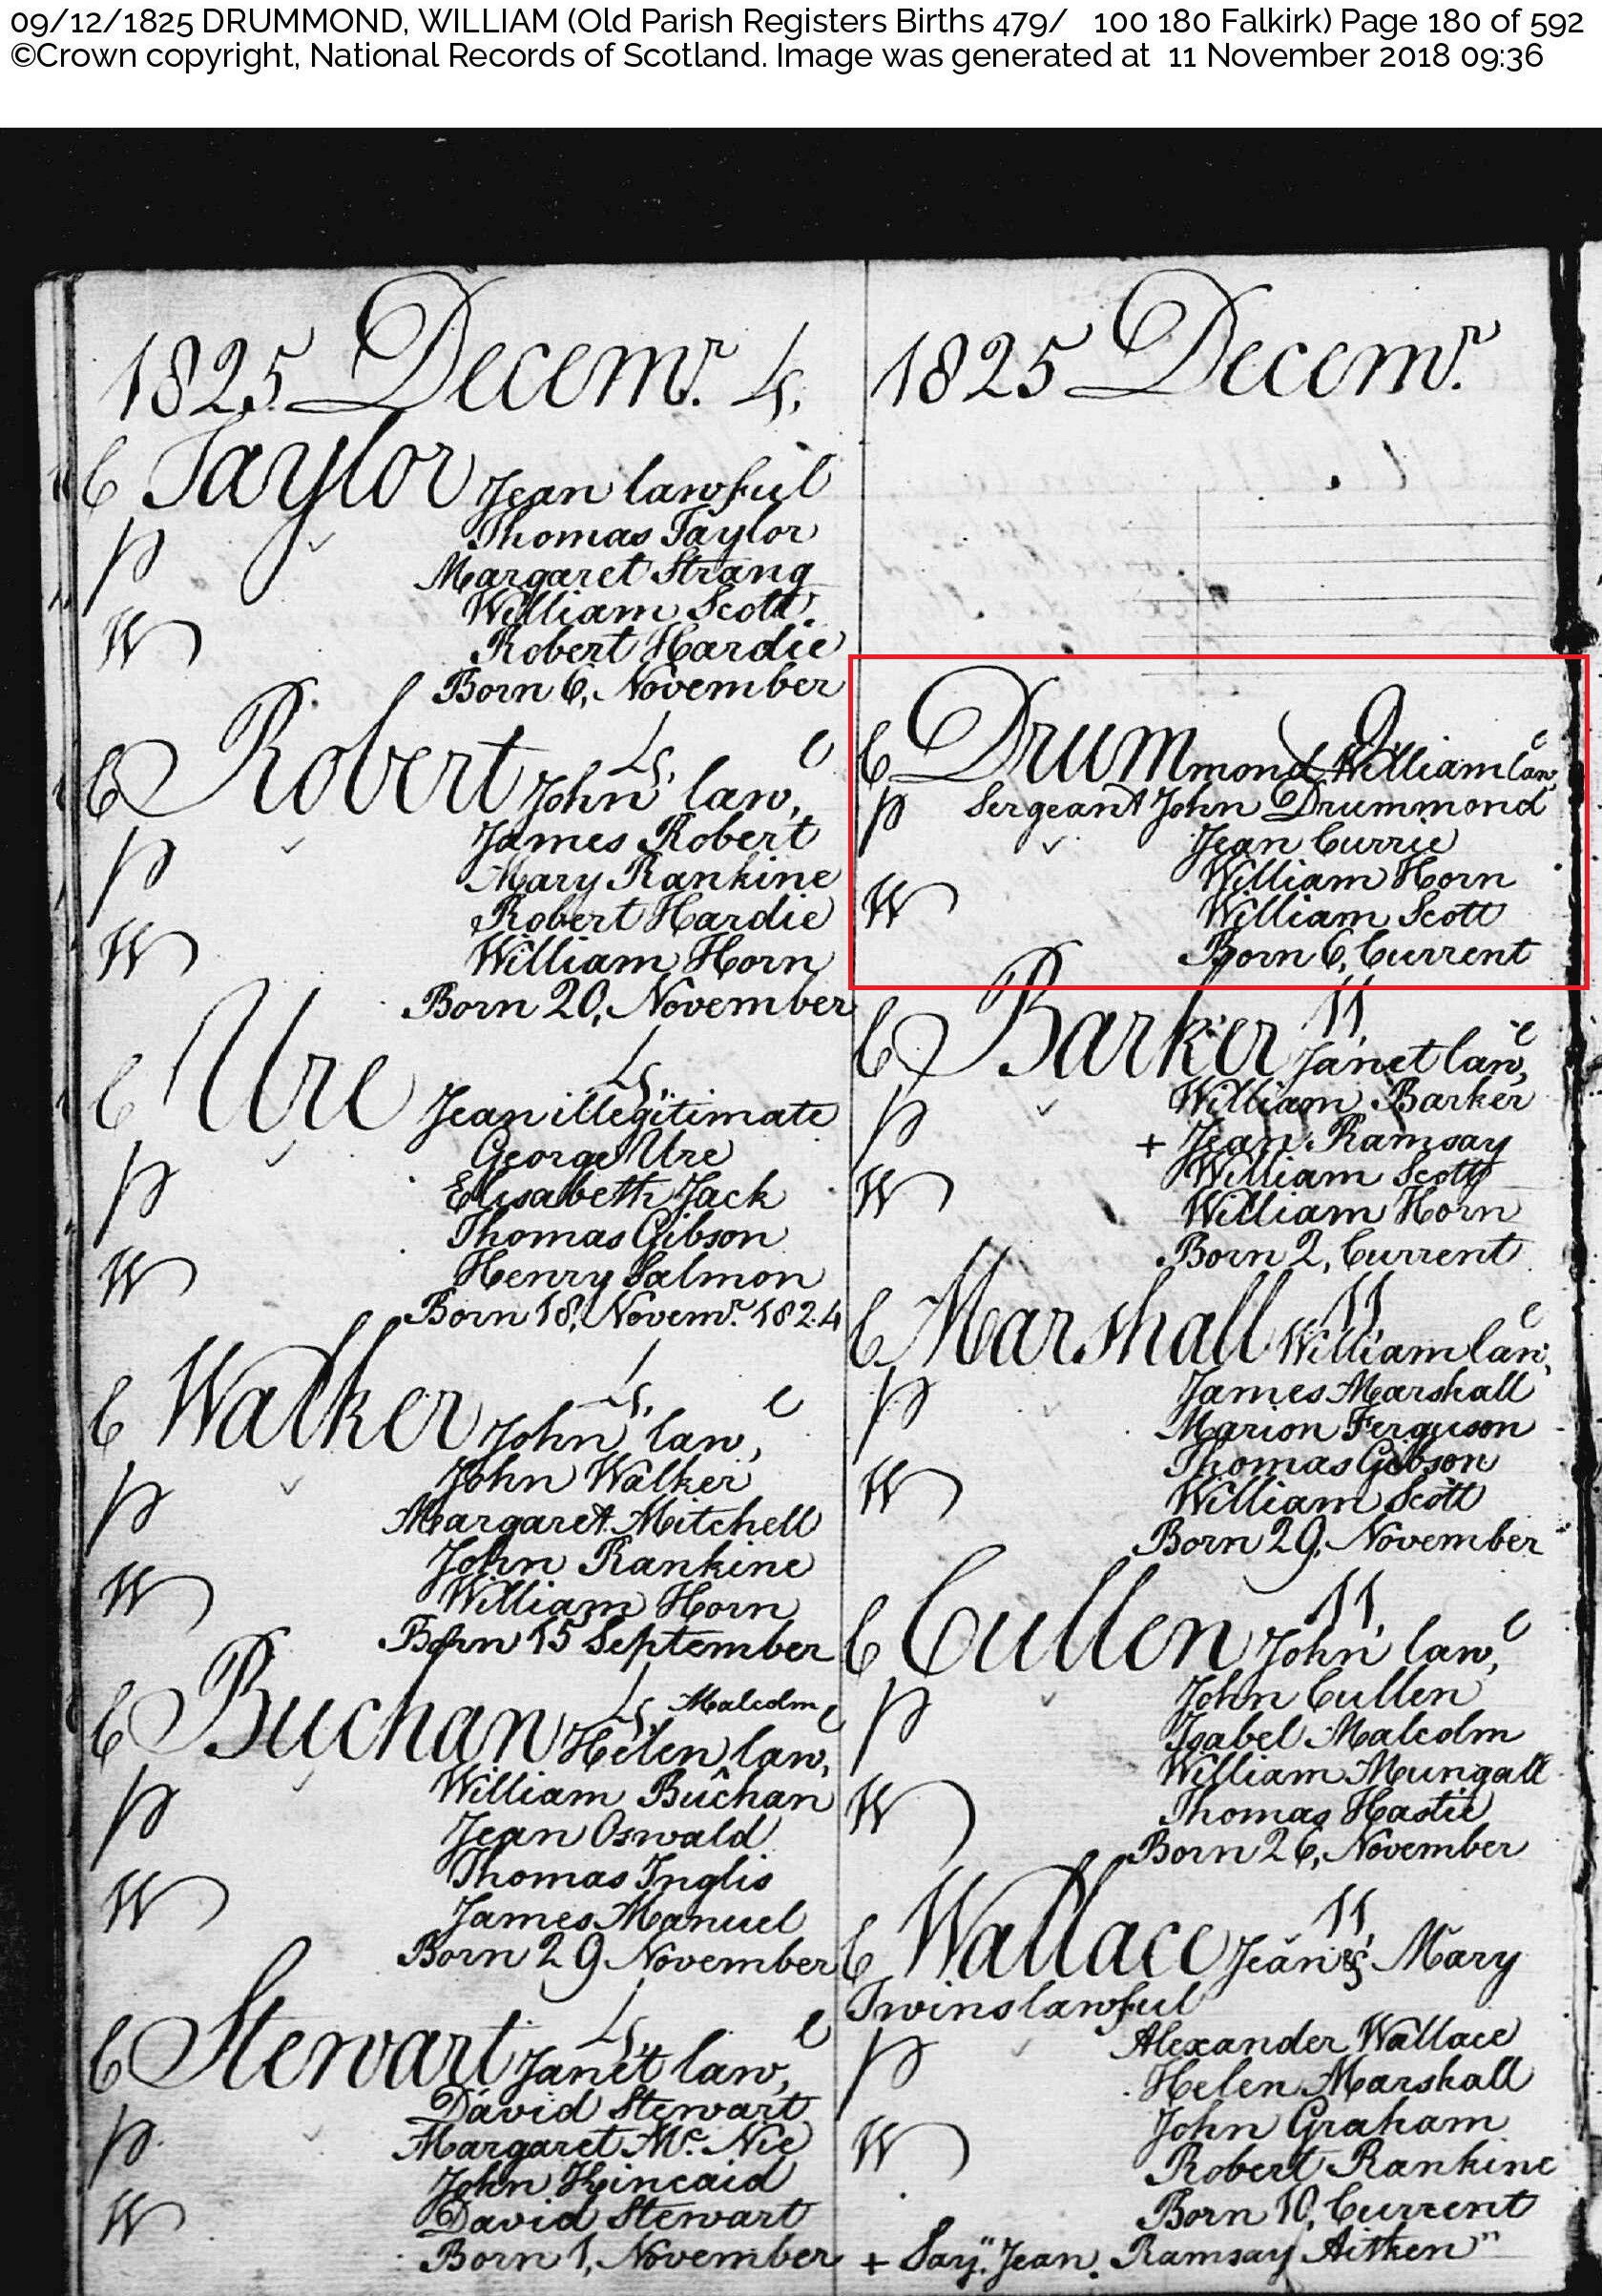 09/12/1825 DRUMMOND, WILLIAM (Old Parish Registers Births 479/ 100 180 Falkirk) Page 180 of 592
©Crown copyright, National Records of Scotland. Image was generated at 11 November 2018 09:36
1825 Decemr. 4,
C Taylor Jean lawful
P Thomas Taylor
Margaret Strang
W William Scott
Robert Hardie
Born 6, November
4,
C Robert John law,e
P James Robert
Mary Rankine
W Robert Hardie
William Horn
Born 20, November
4,
C Ure Jean illegitimate
P George Ure
Elisabeth Jack
W Thomas Gibson
Henry Salmon
Born 18, Novemr. 1824
4,
C Walker John law,e
P John Walker
Margaret Mitchell
W John Rankine
William Horn
Born 15 September
4, Malcolm
C Buchan Helen law,e
P William Buchan
Jean Oswald
W Thomas Inglis
James Manuel
Born 29 November
4,
C Stewart Janet law,e
P David Stewart
Margaret Mc. Nie
W John Kincaid
David Stewart
Born 1, November
1825 Decemr.
9
C Drummond William law,e
P Sergeant John Drummond
Jean Currie
W William Horn
William Scott
Born 6, Current
11,
C Barker Janet law,e
P William Barker
+ Jean Ramsay
W William Scott
William Horn
Born 2, Current
11,
C Marshall William law,e
P James Marshall
Marion Ferguson
W Thomas Gibson
William Scott
Born 29, November
11,
C Cullen John law,e
P John Cullen
Isabel Malcolm
W William Mungall
Thomas Hastie
Born 26, November
11,
C Wallace Jean & Mary
Twins lawful
P Alexander Wallace
Helen Marshall
W John Graham
Robert Rankine
Born 10, Current
+ Say, "Jean Ramsay Aitken"